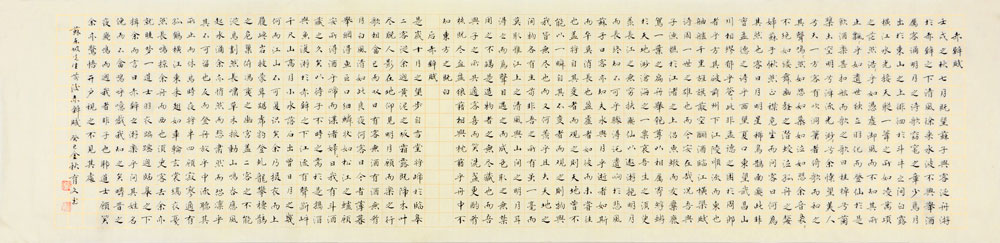 赤壁賦
壬戌之秋七月既望蘇子與客泛舟游
於赤壁之下清風徐來水波不興舉酒
屬客誦明月之詩歌窈窕之章少焉月
出於東山之上徘徊於斗牛之間白露
橫江水光接天縱一葦之所如凌萬頃
之茫然浩浩乎如憑虛御風而不知其所
止飄飄乎如遺世獨立羽化而登仙於是
飲酒樂甚扣舷而歌之歌曰桂棹兮蘭
槳擊空明兮溯流光渺渺兮予懷望美人
兮天一方客有吹洞簫者倚歌而和之
其聲嗚嗚然如怨如慕如泣如訴餘音裊
裊不絕如縷舞幽壑之潛蛟泣孤舟之嫠
婦蘇子愀然正襟危坐而問客曰何為
其然也客曰月明星稀烏鵲南飛此非
曹孟德之詩乎西望夏口東望武昌山
川相繆鬱乎蒼蒼此非孟德之困於周郎
者乎方其破荊州下江陵順流而東也
舳艫千里旌旗蔽空釃酒臨江橫槊賦
詩固一世之雄也而今安在哉況吾與
子漁樵於江渚之上侶魚蝦而友麋鹿
駕一葉之扁舟舉匏樽以相屬寄蜉蝣
於天地渺滄海之一粟哀吾生之須臾
羨長江之無窮挾飛仙以遨遊抱明月
而長終知不可乎驟得託遺響於悲風
蘇子曰客亦知夫水與月乎逝者如斯
而未嘗往也盈虛者如彼而卒莫消長
也蓋將自其變者而觀之則天地曾不
能以一瞬自其不變者而觀之則物與
我皆無盡也而又何羨乎且夫天地之
間物各有主苟非吾之所有雖一毫而
莫取惟江上之清風與山間之明月耳
得之而為聲目遇之而成色取之無禁
用之不竭是造物者之無盡藏也而吾
與子之所共適客喜而笑洗盞更酌肴
核既盡杯盤狼藉相與枕藉乎舟中不
知東方之既白
後赤壁賦
是歲十月之望步自雪堂將歸於臨皋
二客從余過黃泥之坂霜露既降木葉
盡脫人影在地仰見明月顧而樂之行
歌相答已而歎曰有客無酒有酒無肴
月白風清如此良夜何客曰今者薄暮
舉網得魚巨口細鱗狀如松江之鱸顧
安所得酒乎歸而謀諸婦婦曰我有斗酒
藏之久矣以待子不時之需於是攜酒
與魚復遊於赤壁之下江流有聲斷岸
千尺山高月小水落石出曾日月之幾
何而江山不可復識矣余乃攝衣而上
履巉岩披蒙茸踞虎豹登虬龍攀棲鶻
之危巢俯馮夷之幽宮蓋二客不能
從焉劃然長嘯草木震動山鳴谷應風
起水湧余亦悄然而悲肅然而恐凜乎
其不可留也反而登舟放乎中流聽其
所止而休焉時夜將半四顧寂寥適有
孤鶴橫江東來翅如車輪玄裳縞衣戛
然長鳴掠余舟而西也須臾客去余亦
就睡夢一道士羽衣蹁躚過臨皋之下
揖余而言曰赤壁之遊樂乎問其姓名
俛而不答嗚呼噫嘻我知之矣疇昔之
夜飛鳴而過我者非子也耶道士顧笑
余亦驚悟開戶視之不見其處
蘇東坡先生前後赤壁賦 癸巳金秋育文書